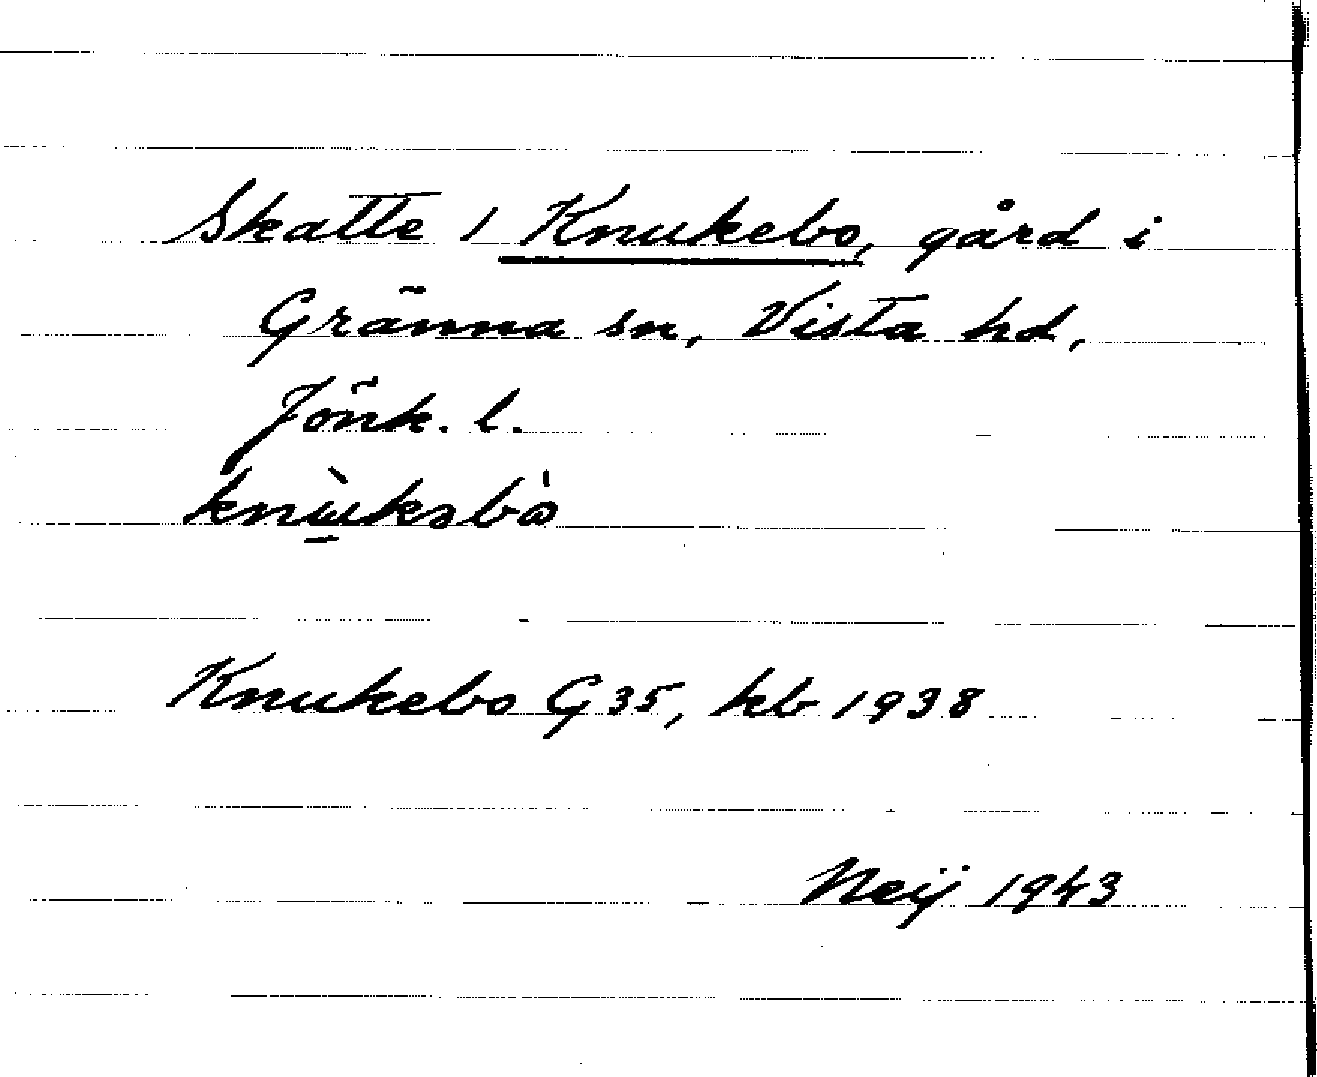 Skatte 1 Knukebo, gård i
Gränna sn, Vista hd,
Jönk. l.
knùksbò
Knukebo G 35, kb 1938
Neij 1943